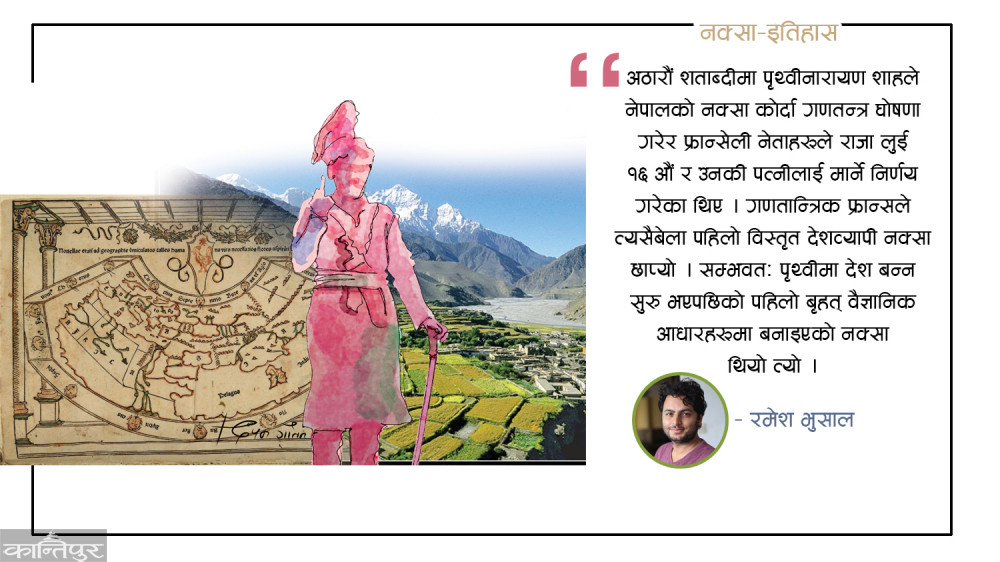 नक्सा-इतिहास
अठारौं शताब्दीमा पृथ्वीनारायण शाहले
नेपालको नक्सा कोर्दा गणतन्त्र घोषणा
गरेर फ्रान्सेली नेताहरुले राजा लुई
१६ औं र उनकी पत्नीलाई मार्ने निर्णय
गरेका थिए । गणतान्त्रिक फ्रान्सले
त्यसैबेला पहिलो विस्तृत देशव्यापी नक्सा
छाप्यो । सम्भवतः पृथ्वीमा देश बन्न
सुरु भएपछिको पहिलो बृहत् वैज्ञानिक
आधारहरुमा बनाइएको नक्सा
थियो त्यो ।
- रमेश भुसाल
कान्तिपुर